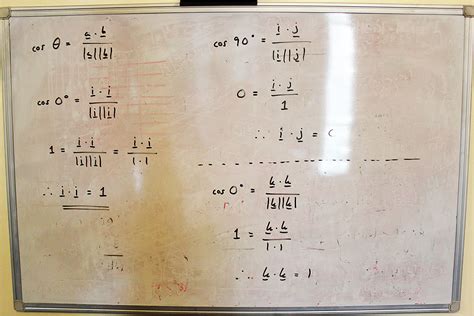 cos θ = a̲ · b̲ / |a̲||b̲|
cos 0° = i̲ · i̲ / |i̲||i̲|
1 = i̲ · i̲ / |i̲||i̲| = i̲ · i̲ / 1·1
∴ i̲ · i̲ = 1
cos 90° = i̲ · j̲ / |i̲||j̲|
0 = i̲ · j̲ / 1
∴ i̲ · j̲ =
cos 0° = k̲ · k̲ / |k̲||k̲|
1 = k̲ · k̲ / 1·1
∴ k̲ · k̲ = 1